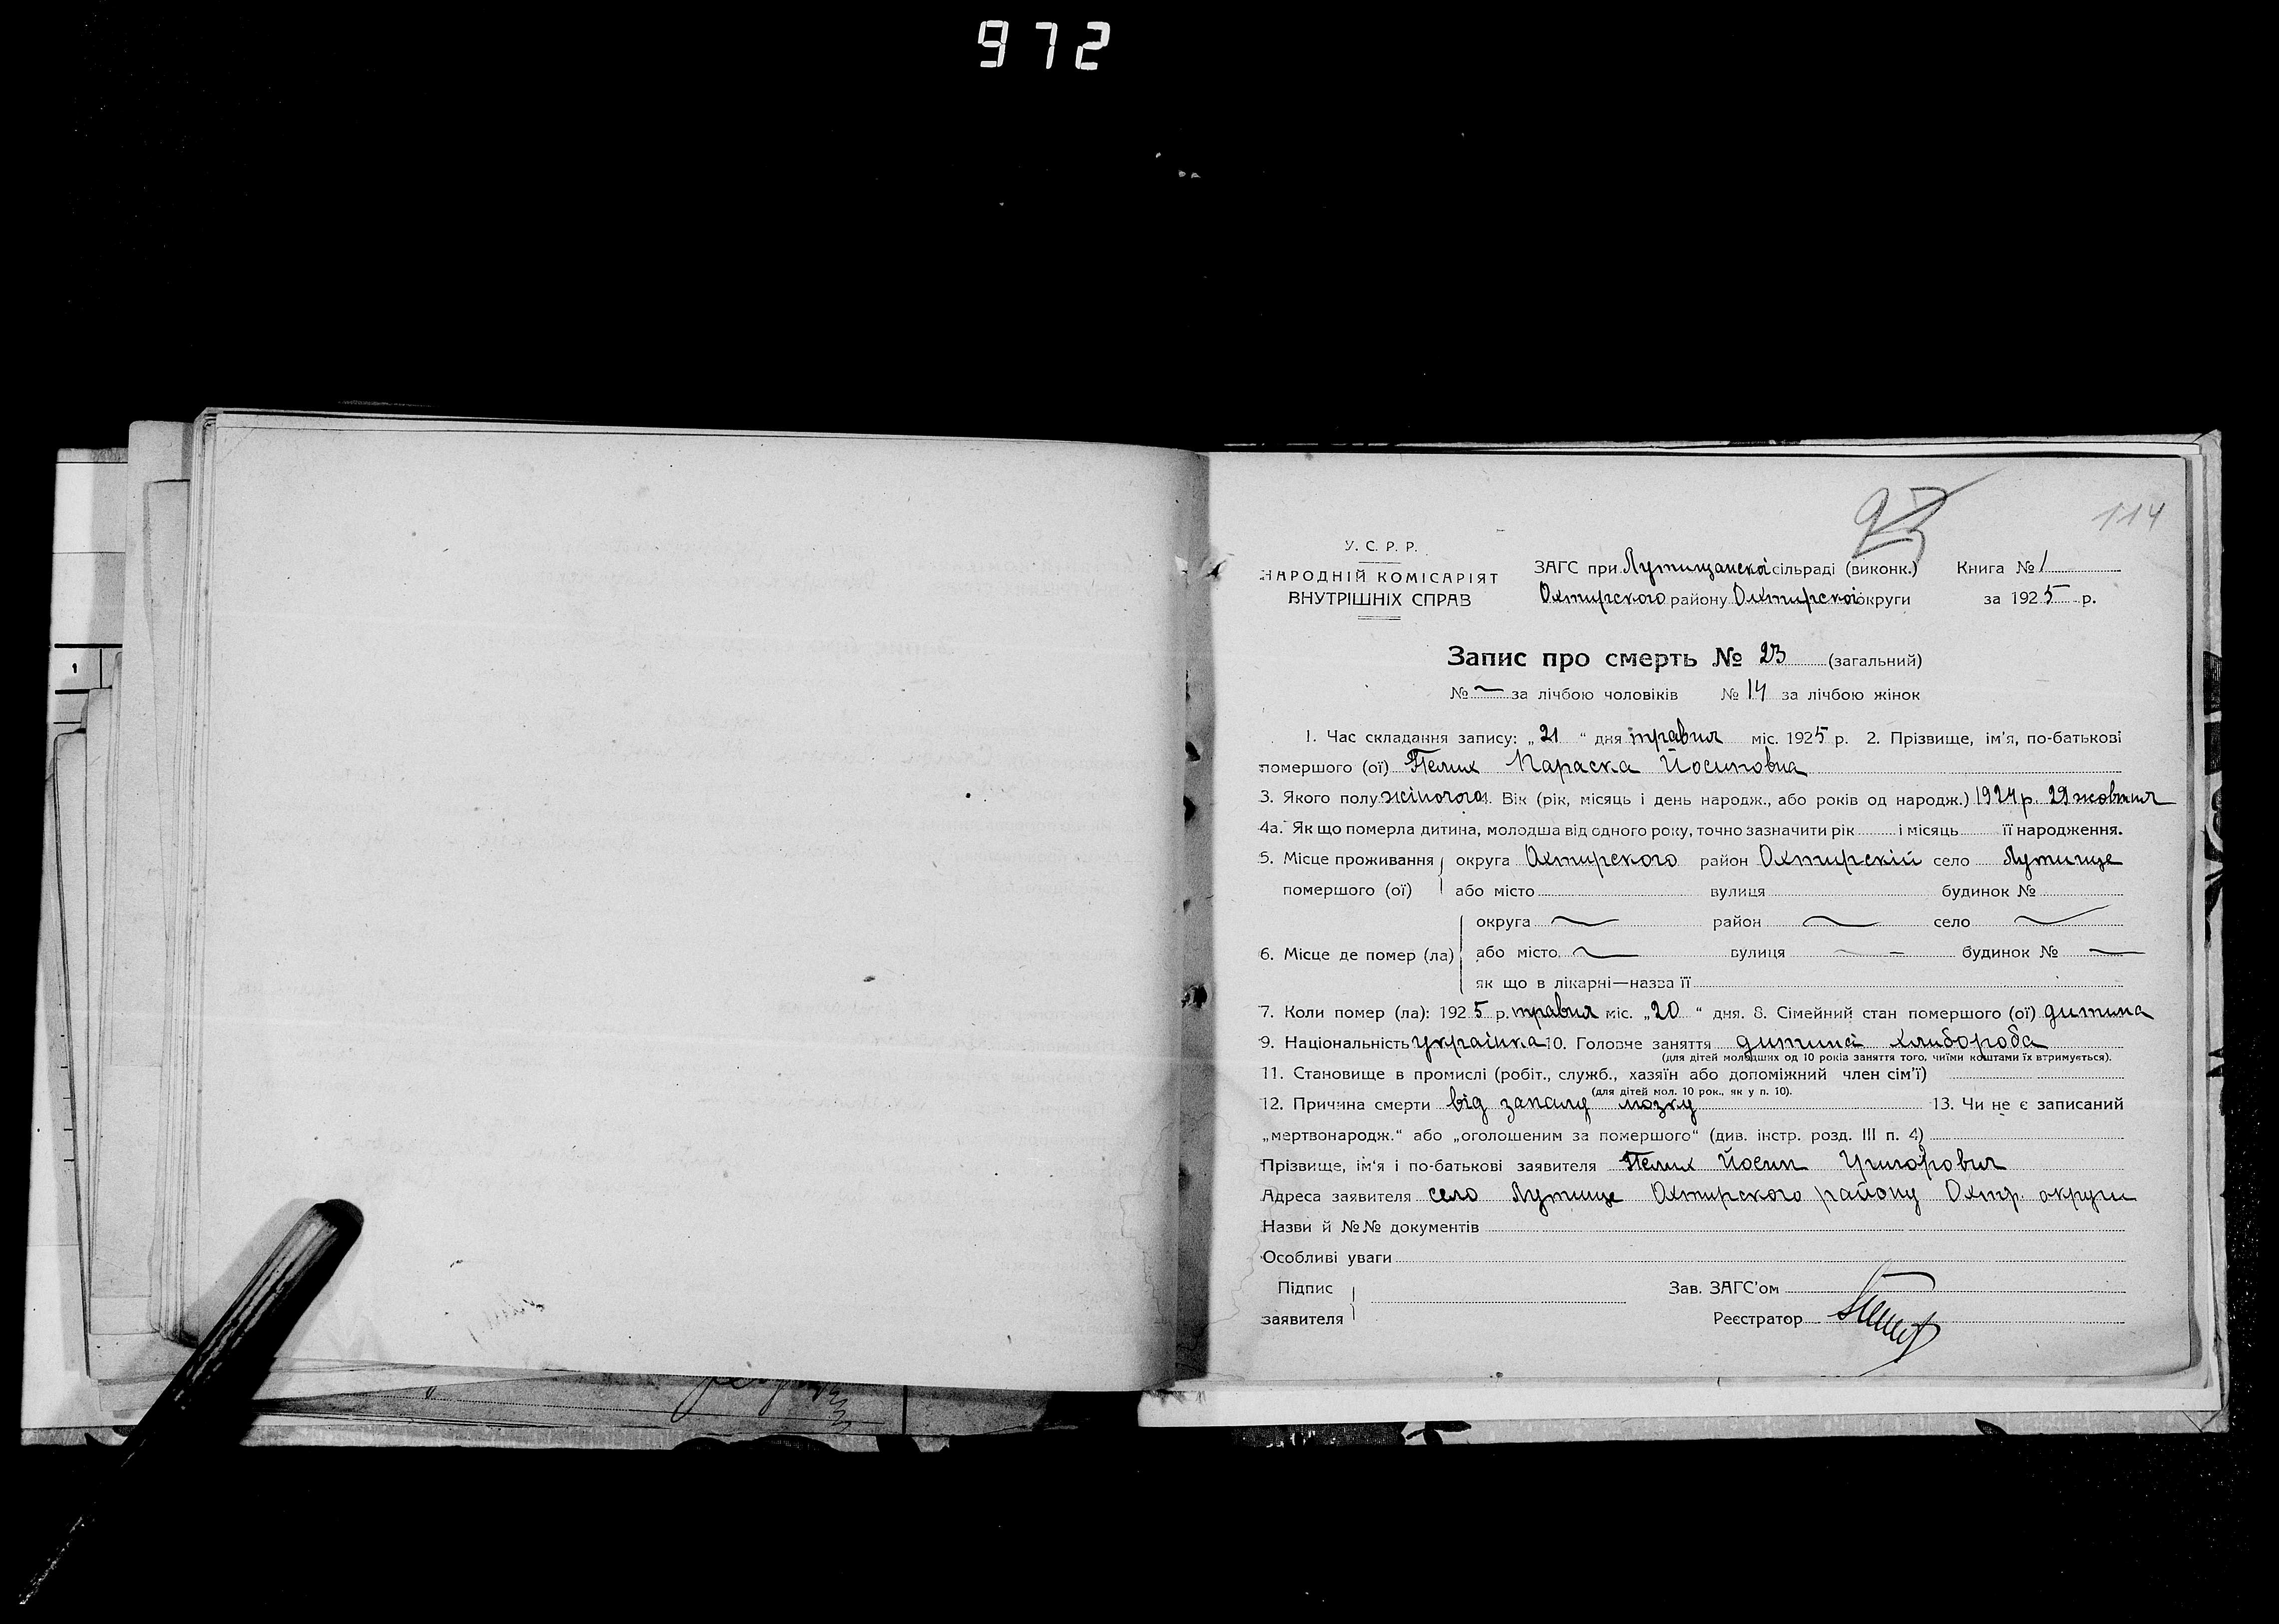 972
93
114
У. С. Р. Р.
НАРОДНІЙ КОМІСАРІЯТ
ВНУТРІШНІХ СПРАВ
ЗАГС при Лутищанскої сільраді (виконк.) Книга № 1
Охтирського району Охтирскої округи за 1925 р.
Запис про смерть № 23 (загальний)
№ — за лічбою чоловіків № 14 за лічбою жінок
1. Час складання запису: „21“ дня травня міс. 1925 р. 2. Прізвище, ім'я, по-батькові
помершого (ої) Пелих Параска Йосиповна
3. Якого полу жіночого 4. Вік (рік, місяць і день народж., або років од народж.) 1924 р. 29 жовтня
4а. Як що померла дитина, молодша від одного року, точно зазначити рік і місяць її народження.
5. Місце проживання округа Охтирского район Охтирскій село Лутище
помершого (ої) або місто вулиця будинок №
округа — район — село —
6. Місце де помер (ла) або місто — вулиця — будинок № —
як що в лікарні—назва її
7. Коли помер (ла): 1925 р. травня міс. „20“ дня. 8. Сімейний стан помершого (ої) дитина
9. Національність українка 10. Головне заняття дитина хлибороба
(для дітей молодших од 10 років заняття того, чиїми коштами їх втримується).
11. Становище в промислі (робіт., служб., хазяїн або допоміжний член сім'ї)
(для дітей мол. 10 рок., як у п. 10).
12. Причина смерти від запалу мозку 13. Чи не є записаний
„мертвонародж.“ або „оголошеним за помершого“ (див. інстр. розд. III п. 4)
Прізвище, ім'я і по-батькові заявителя Пелих Йосип Григорович
Адреса заявителя село Лутище Охтирского району Охтир. округи
Назви й №№ документів
Особливі уваги
Підпис Зав. ЗАГС'ом
заявителя Реєстратор